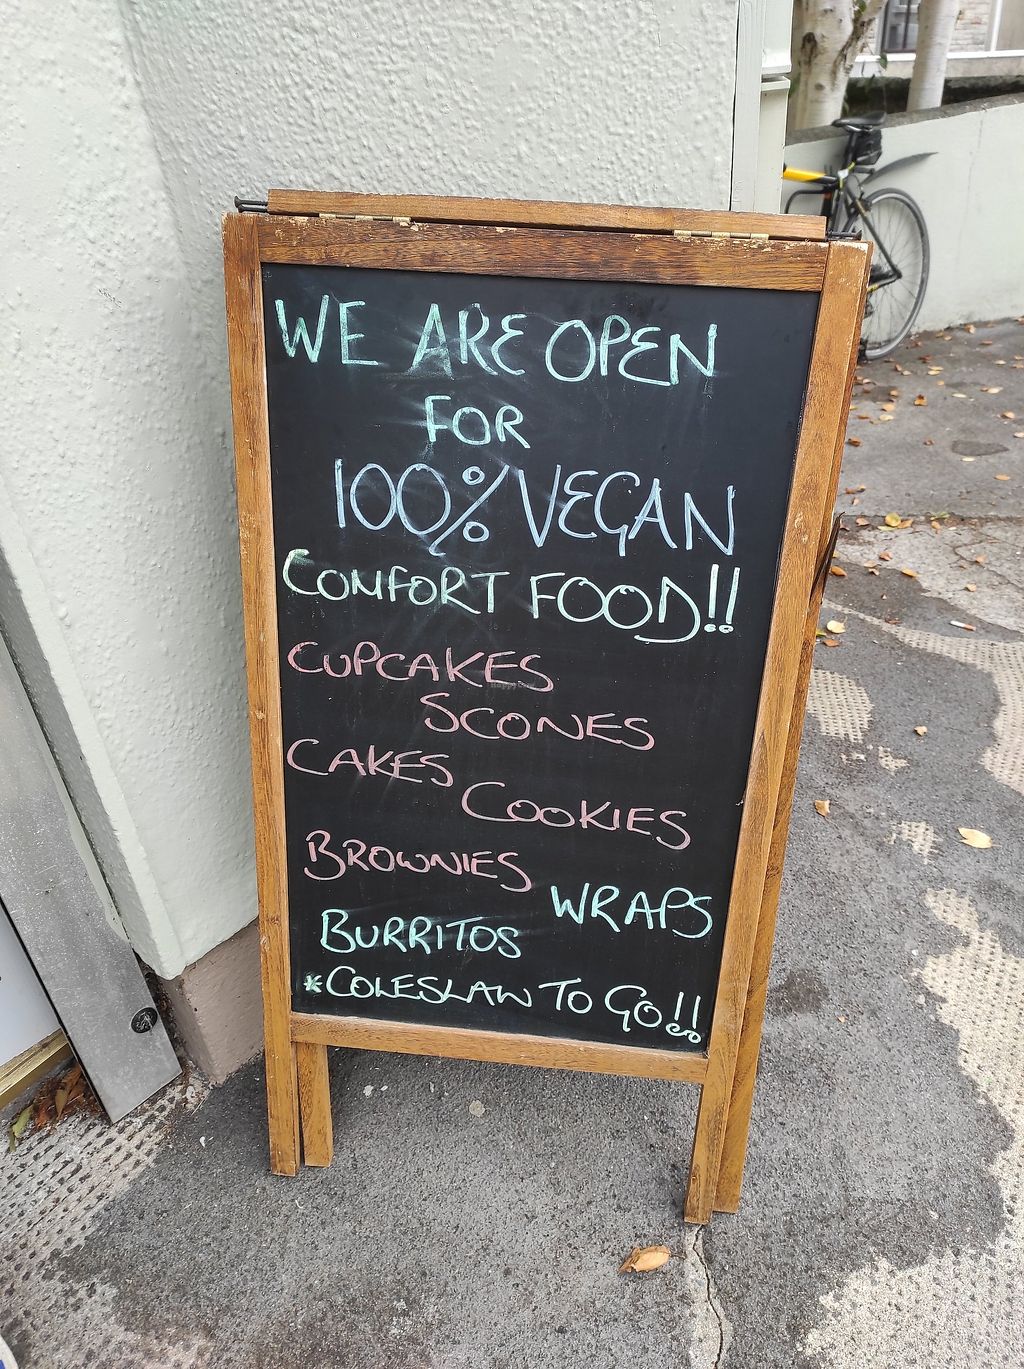 WE ARE OPEN
FOR
100% VEGAN
COMFORT FOOD!!
CUPCAKES
SCONES
CAKES
COOKIES
BROWNIES
WRAPS
BURRITOS
*COLESLAW TO GO!!